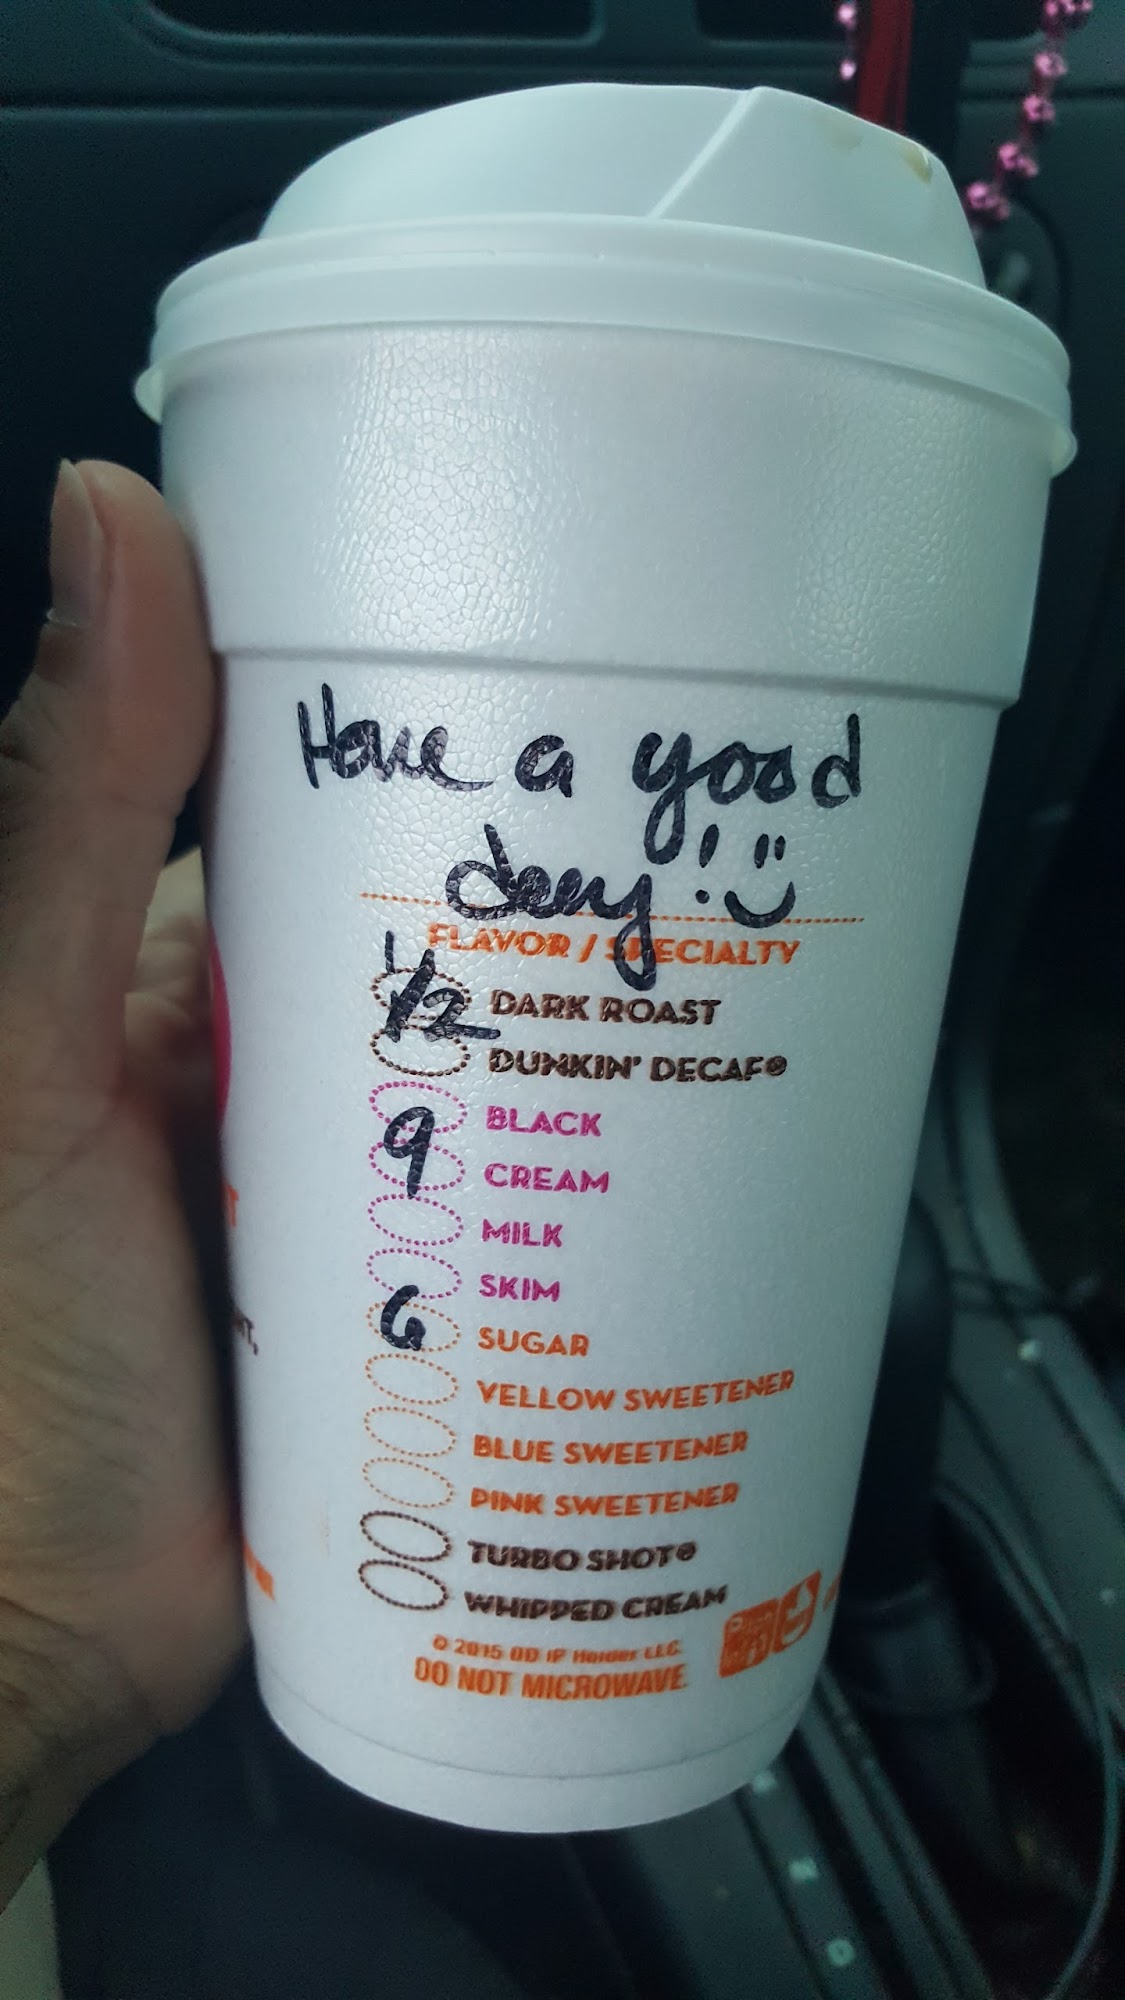 Have a good
day!
FLAVOR / SPECIALTY
1/2 DARK ROAST
DUNKIN' DECAF®
BLACK
9 CREAM
MILK
SKIM
6 SUGAR
YELLOW SWEETENER
BLUE SWEETENER
PINK SWEETENER
TURBO SHOT®
WHIPPED CREAM
© 2015 DD IP Holder LLC.
DO NOT MICROWAVE.